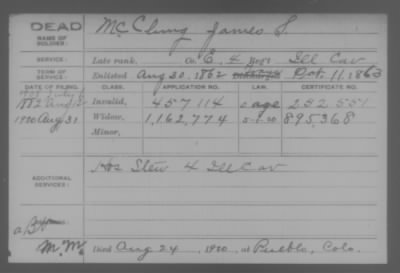 DEAD
NAME OF SOLDIER:
McClung James S.
SERVICE:
Late rank, Co. E, 4 Reg't Ill Cav
TERM OF SERVICE:
Enlisted Aug 30, 1862 Oct. 11, 1863
DATE OF FILING. CLASS. APPLICATION NO. LAW. CERTIFICATE NO.
1882 Aug Invalid, 457114 age 232551
1920 Aug 31 Widow, 1,162,774 5-1-20 895,368
Minor,
ADDITIONAL SERVICES:
Hos Stew 4 Ill Cav
Died Aug 24, 1920, at Pueblo, Colo.